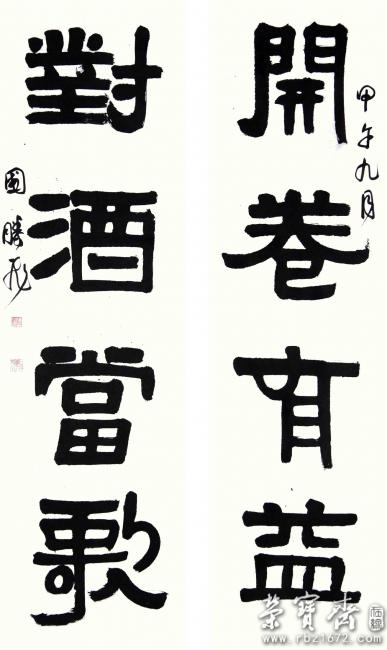 甲午九月
開卷有益
對酒當歌
國勝
榮寶齋
www.rbz1672.com